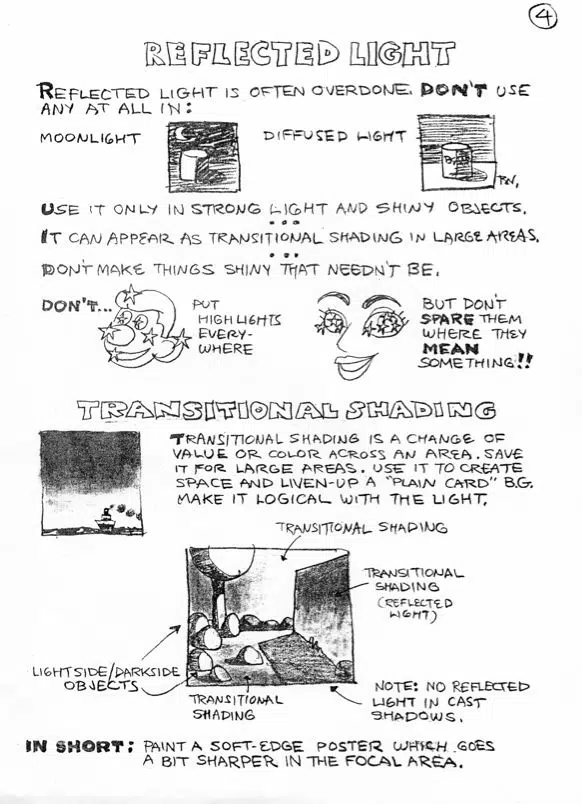 4
REFLECTED LIGHT
REFLECTED LIGHT IS OFTEN OVERDONE. DON'T USE
ANY AT ALL IN:
MOONLIGHT
DIFFUSED LIGHT
USE IT ONLY IN STRONG LIGHT AND SHINY OBJECTS.
IT CAN APPEAR AS TRANSITIONAL SHADING IN LARGE AREAS.
DON'T MAKE THINGS SHINY THAT NEEDN'T BE.
DON'T...
PUT
HIGHLIGHTS
EVERY-
WHERE
BUT DON'T
SPARE THEM
WHERE THEY
MEAN
SOMETHING!!
TRANSITIONAL SHADING
TRANSITIONAL SHADING IS A CHANGE OF
VALUE OR COLOR ACROSS AN AREA. SAVE
IT FOR LARGE AREAS. USE IT TO CREATE
SPACE AND LIVEN-UP A "PLAIN CARD" B.G.
MAKE IT LOGICAL WITH THE LIGHT.
TRANSITIONAL SHADING
TRANSITIONAL
SHADING
(REFLECTED
LIGHT)
LIGHTSIDE/DARKSIDE
OBJECTS
TRANSITIONAL
SHADING
NOTE: NO REFLECTED
LIGHT IN CAST
SHADOWS.
IN SHORT: PAINT A SOFT-EDGE POSTER WHICH GOES
A BIT SHARPER IN THE FOCAL AREA.